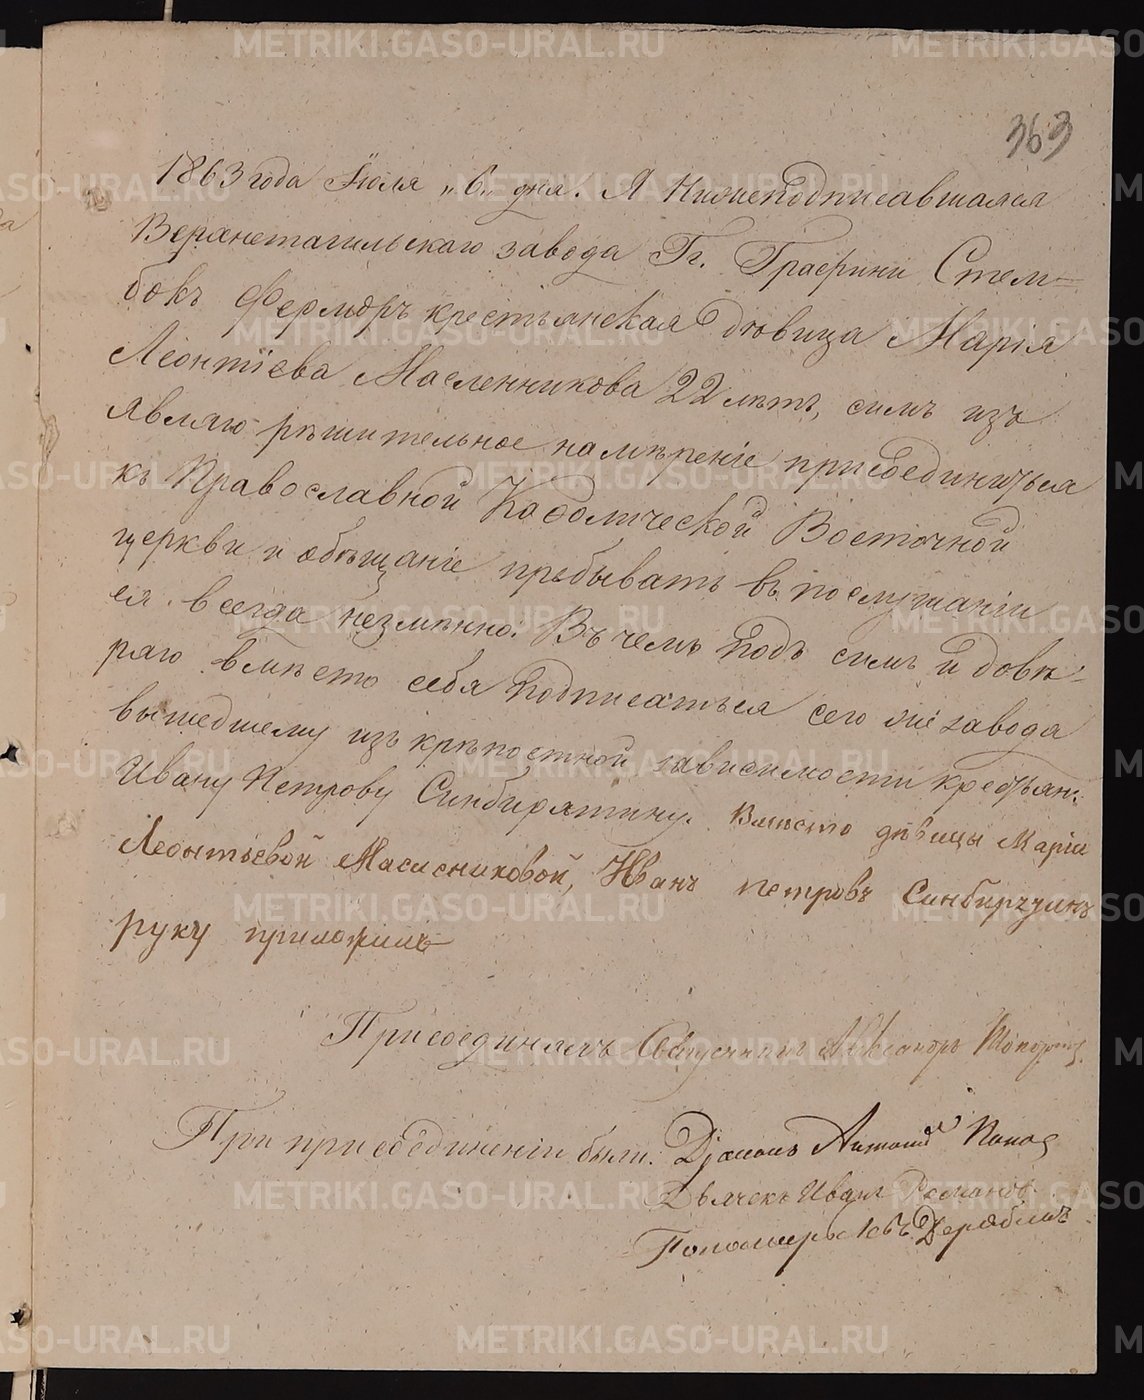 363
1863 года Іюля „6„ дня. Я Нижеподписавшаяся
Верхнетагильскаго завода Гг. Графини Стем=
бокъ Ферморъ крестьянская дѣвица Марія
Леонтіева Масленникова 22 лѣтъ, симъ изъ
являю рѣшительное намѣреніе присоединиться
къ Православной Каѳолической Восточной
церкви и обѣщаніе пребывать въ послушаніи
ея всегда неизмѣнно. Въ чемъ подъ симъ и довѣ-
ряю вмѣсто себя подписаться сего же завода
вышедшему изъ крѣпостной зависимости крестьян:
Ивану Петрову Синбирятину. Вместо дѣвицы Маріи
Леонтьевой Маслениковой, Иванъ петровъ Синбирятинъ
руку приложилъ
Присоединялъ Священникъ Александръ Топорковъ.
При присоединеніи были: Діаконъ Антоній Попов
Дьячекъ Иванъ Романовъ
Пономарь Левъ Дерябинъ
METRIKI.GASO-URAL.RU